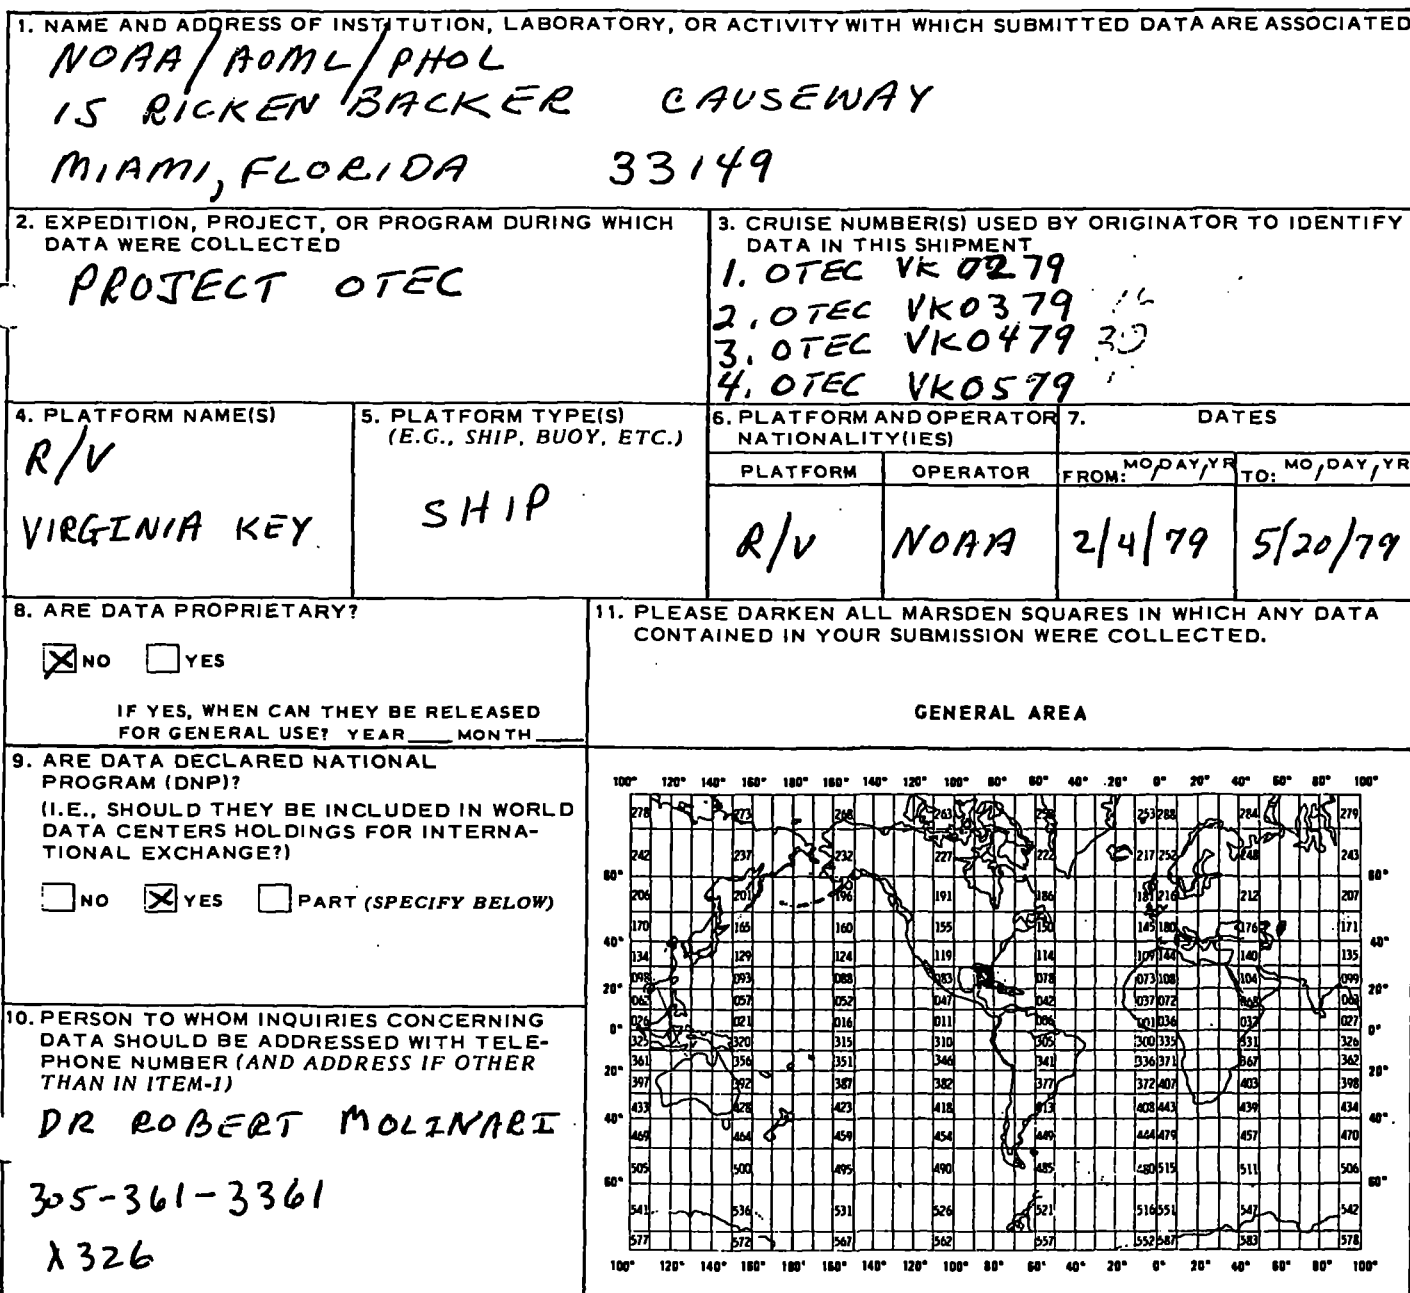 1. NAME AND ADDRESS OF INSTITUTION, LABORATORY, OR ACTIVITY WITH WHICH SUBMITTED DATA ARE ASSOCIATED
NOAA/AOML/PHOL
15 RICKEN BACKER CAUSEWAY
MIAMI, FLORIDA 33149
2. EXPEDITION, PROJECT, OR PROGRAM DURING WHICH
DATA WERE COLLECTED
PROJECT OTEC
3. CRUISE NUMBER(S) USED BY ORIGINATOR TO IDENTIFY
DATA IN THIS SHIPMENT
1. OTEC VK 0279
2. OTEC VK0379
3. OTEC VK0479
4. OTEC VK0579
4. PLATFORM NAME(S)
R/V
VIRGINIA KEY
5. PLATFORM TYPE(S)
(E.G., SHIP, BUOY, ETC.)
SHIP
6. PLATFORM AND OPERATOR
NATIONALITY(IES)
PLATFORM OPERATOR
R/V NOAA
7. DATES
FROM: MO/DAY/YR TO: MO/DAY/YR
2/4/79 5/20/79
8. ARE DATA PROPRIETARY?
NO YES
IF YES, WHEN CAN THEY BE RELEASED
FOR GENERAL USE? YEAR____ MONTH____
9. ARE DATA DECLARED NATIONAL
PROGRAM (DNP)?
(I.E., SHOULD THEY BE INCLUDED IN WORLD
DATA CENTERS HOLDINGS FOR INTERNA-
TIONAL EXCHANGE?)
NO YES PART (SPECIFY BELOW)
10. PERSON TO WHOM INQUIRIES CONCERNING
DATA SHOULD BE ADDRESSED WITH TELE-
PHONE NUMBER (AND ADDRESS IF OTHER
THAN IN ITEM-1)
DR ROBERT MOLINARI
305-361-3361
X326
11. PLEASE DARKEN ALL MARSDEN SQUARES IN WHICH ANY DATA
CONTAINED IN YOUR SUBMISSION WERE COLLECTED.
GENERAL AREA
100° 120° 140° 160° 180° 160° 140° 120° 100° 80° 60° 40° 20° 0° 20° 40° 60° 80° 100°
278 273 268 263 258 253 288 284 279
242 237 232 227 222 217 252 248 243
60° 60°
206 201 196 191 186 181 216 212 207
170 165 160 155 150 145 180 176 171
40° 40°
134 129 124 119 114 109 144 140 135
098 093 088 083 078 073 108 104 099
20° 20°
062 057 052 047 042 037 072 068 063
026 021 016 011 006 001 036 032 027
0° 0°
325 320 315 310 305 300 335 331 326
361 356 351 346 341 336 371 367 362
20° 20°
397 392 387 382 377 372 407 403 398
433 428 423 418 413 408 443 439 434
40° 40°
469 464 459 454 449 444 479 457 470
505 500 495 490 485 480 515 511 506
60° 60°
541 536 531 526 521 516 551 547 542
577 572 567 562 557 552 587 583 578
100° 120° 140° 160° 180° 160° 140° 120° 100° 80° 60° 40° 20° 0° 20° 40° 60° 80° 100°